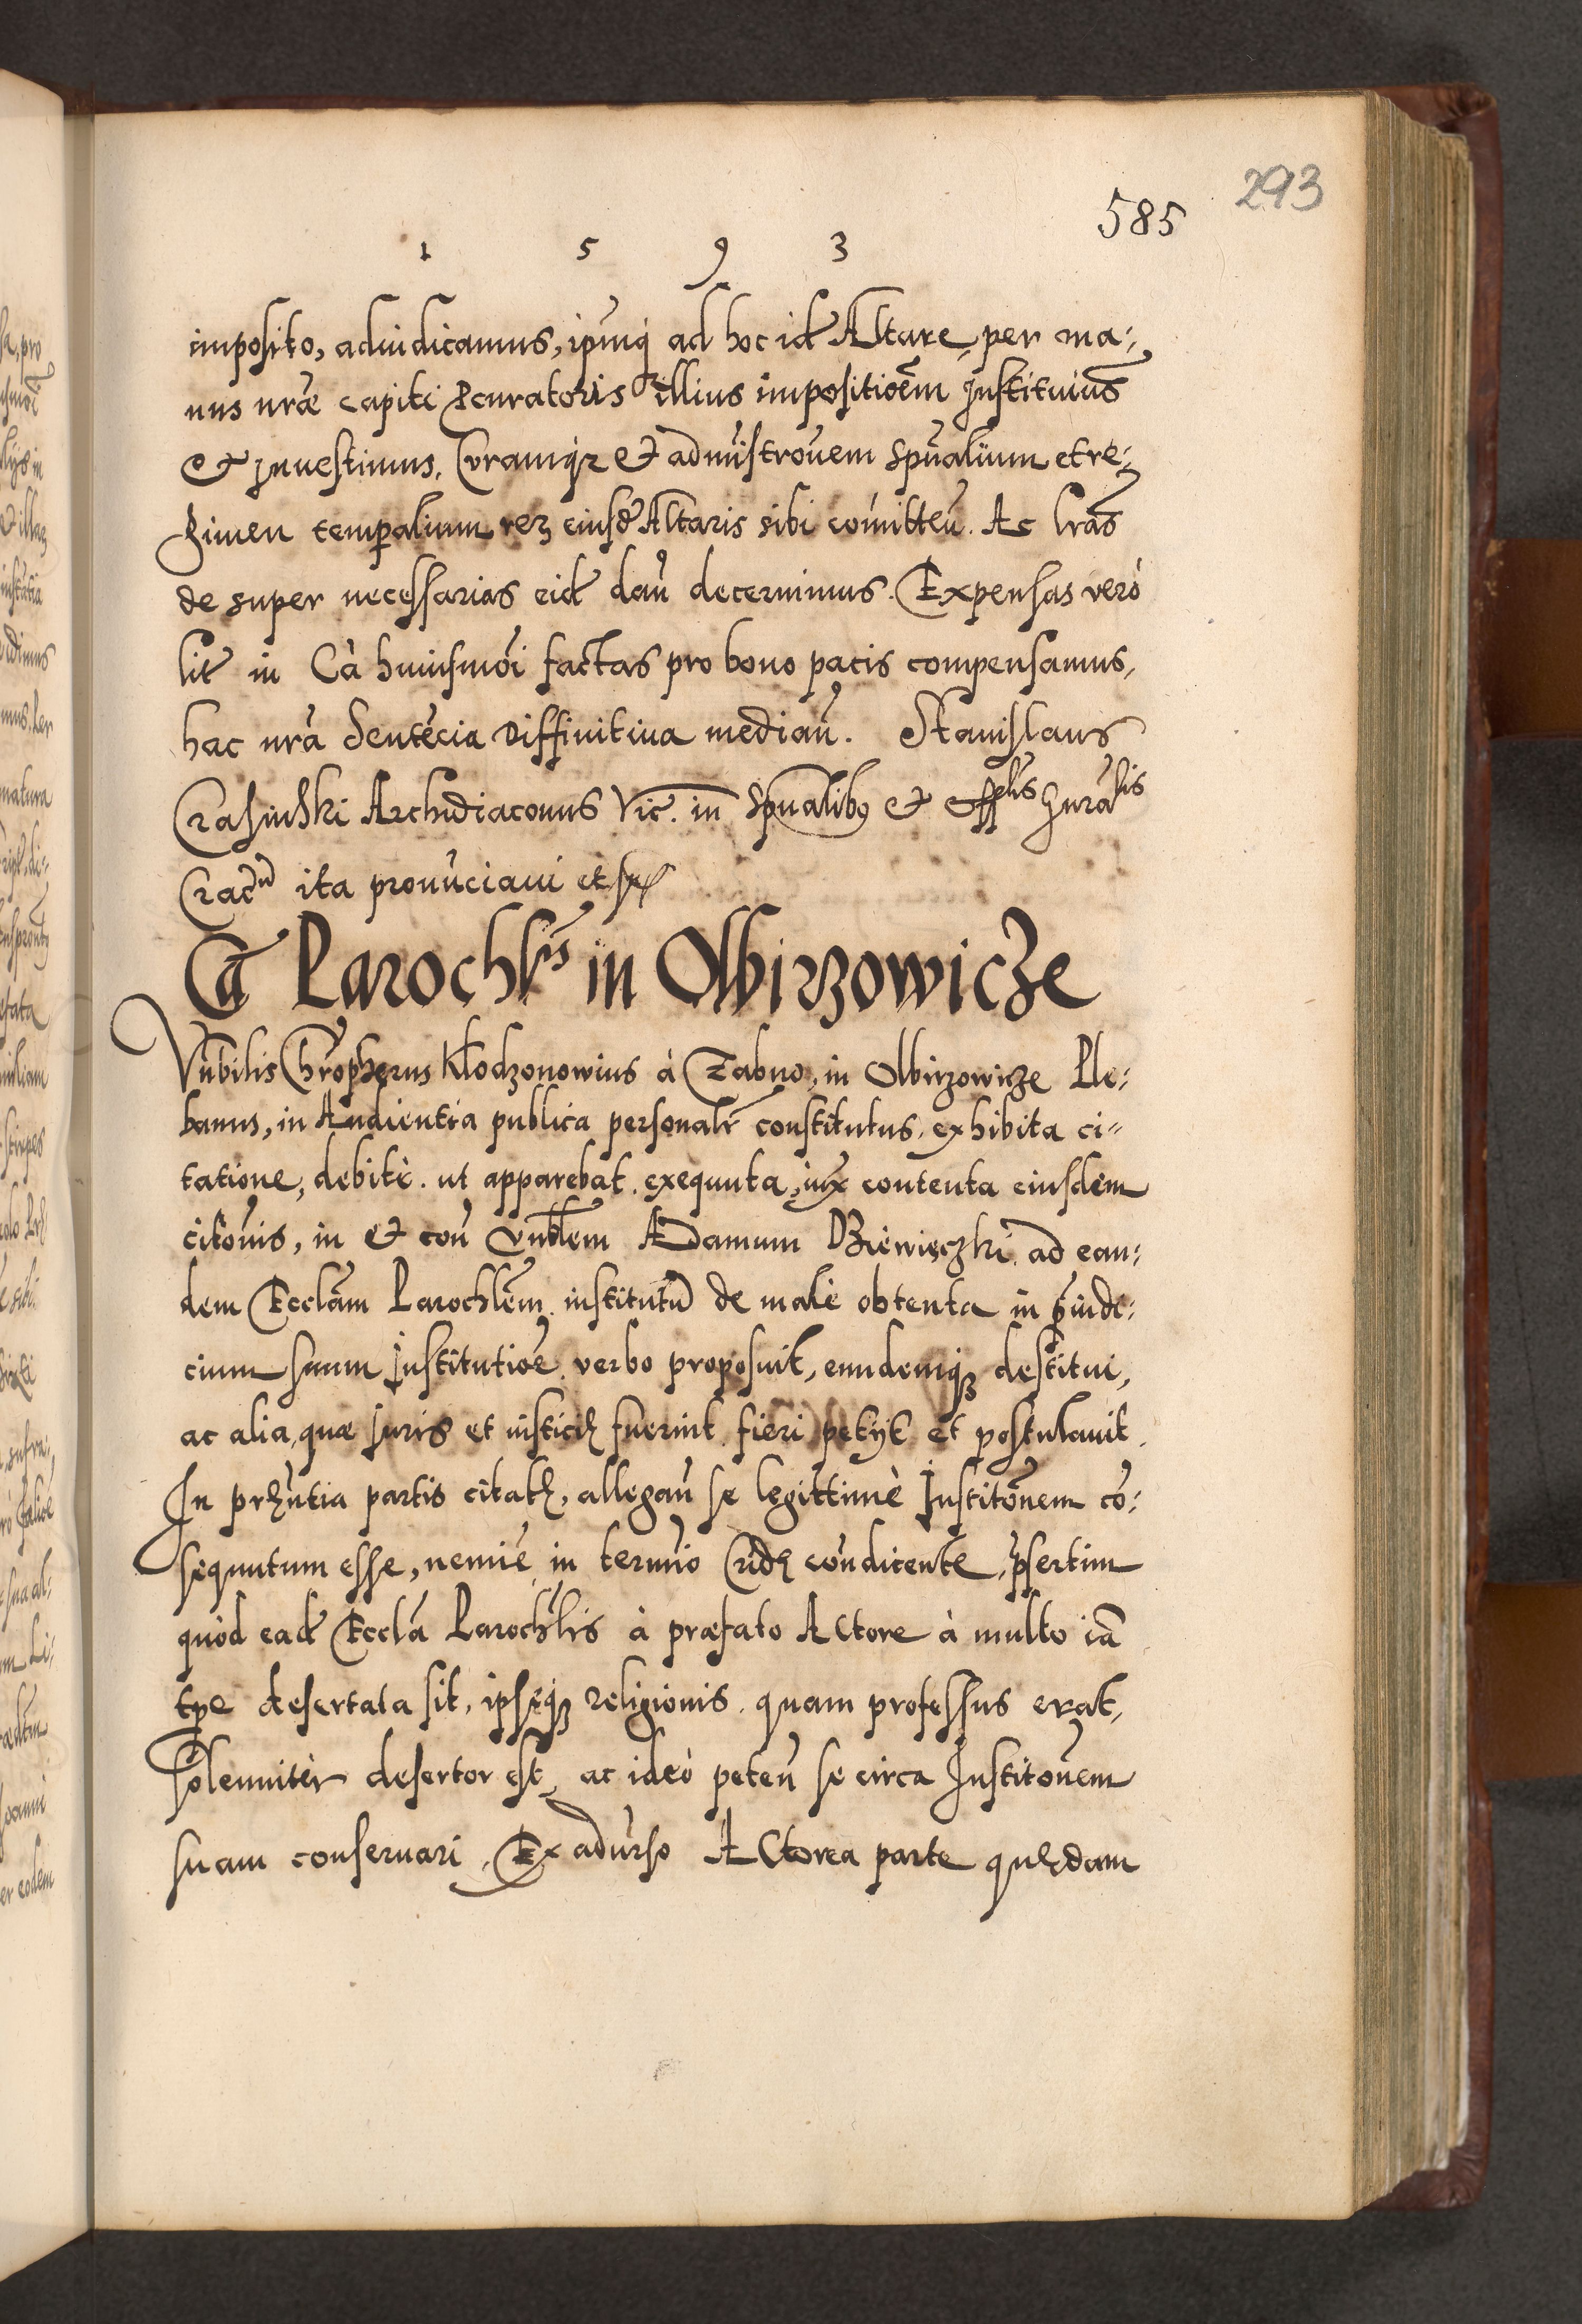 293
585
1 5 9 3
imposito, adiudicamus, ipm̃q̃ ad hoc id̃ Altare, per ma⸗
nus nr̃æ capiti Pcuratoris illius impositiõem Instituim̃s
et Inuestimus. Curamq̃z et admĩstrõnem Spũalium et re⸗
gimen temp̱alium rez̃ eiusd̃ Altaris sibi com̃itten̄. Ac lr̃as
de super necessarias eid̃ dan̄ decernimus. Expensas verò
lit̃ in Cã huiusmõi factas pro bono pacis compensamus,
hac nr̃a Sentẽcia Diffinitiua median̄. Stanislaus
Crasinski Archidiaconus Vic̃. in Sp̃ualibq et Offlis Gnr̃alis
Crac̃n ita pronũciaui et spt
Cã Parochl̃s in Olbirzowicze
Vn̄bilis Chr̃opherus Klodzonowius à Zabno, in Olbirzowicze Ple⸗
banus, in Audientia publica personalr̃ constitutus, exhibita ci⸗
tatione, debitè. ut apparebat. exequuta, iux̃ contenta eiusdem
citõnis, in et con̄ Vnbl̃em Adamum Dziewięczki. ad ean⸗
dem Eccl̃am Parochl̃em. institutũ de malè obtenta in p̃iudi⸗
cium suum Institutiõe. verbo proposuit, eundemqz destitui,
ac alia, quæ Juris et iusticię fuerint. fieri petijt et postulauit.
In pręñtia partis citatę, allegan̄ se legittimè Institõnem cõ⸗
sequutum esse, nemiẽ, in termĩo Cridę con̄dicente, p̃sertim
quòd ead̃ Eccl̃a Parochl̃is à præfato Actore à multo iã
tp̃e desertata sit, ipseqz religionis. quam professus erat,
solemnitèr desertor est, ac ideò peten̄ se circa Institõnem
suam conseruari. Ex aduerso Actorea parte quędam